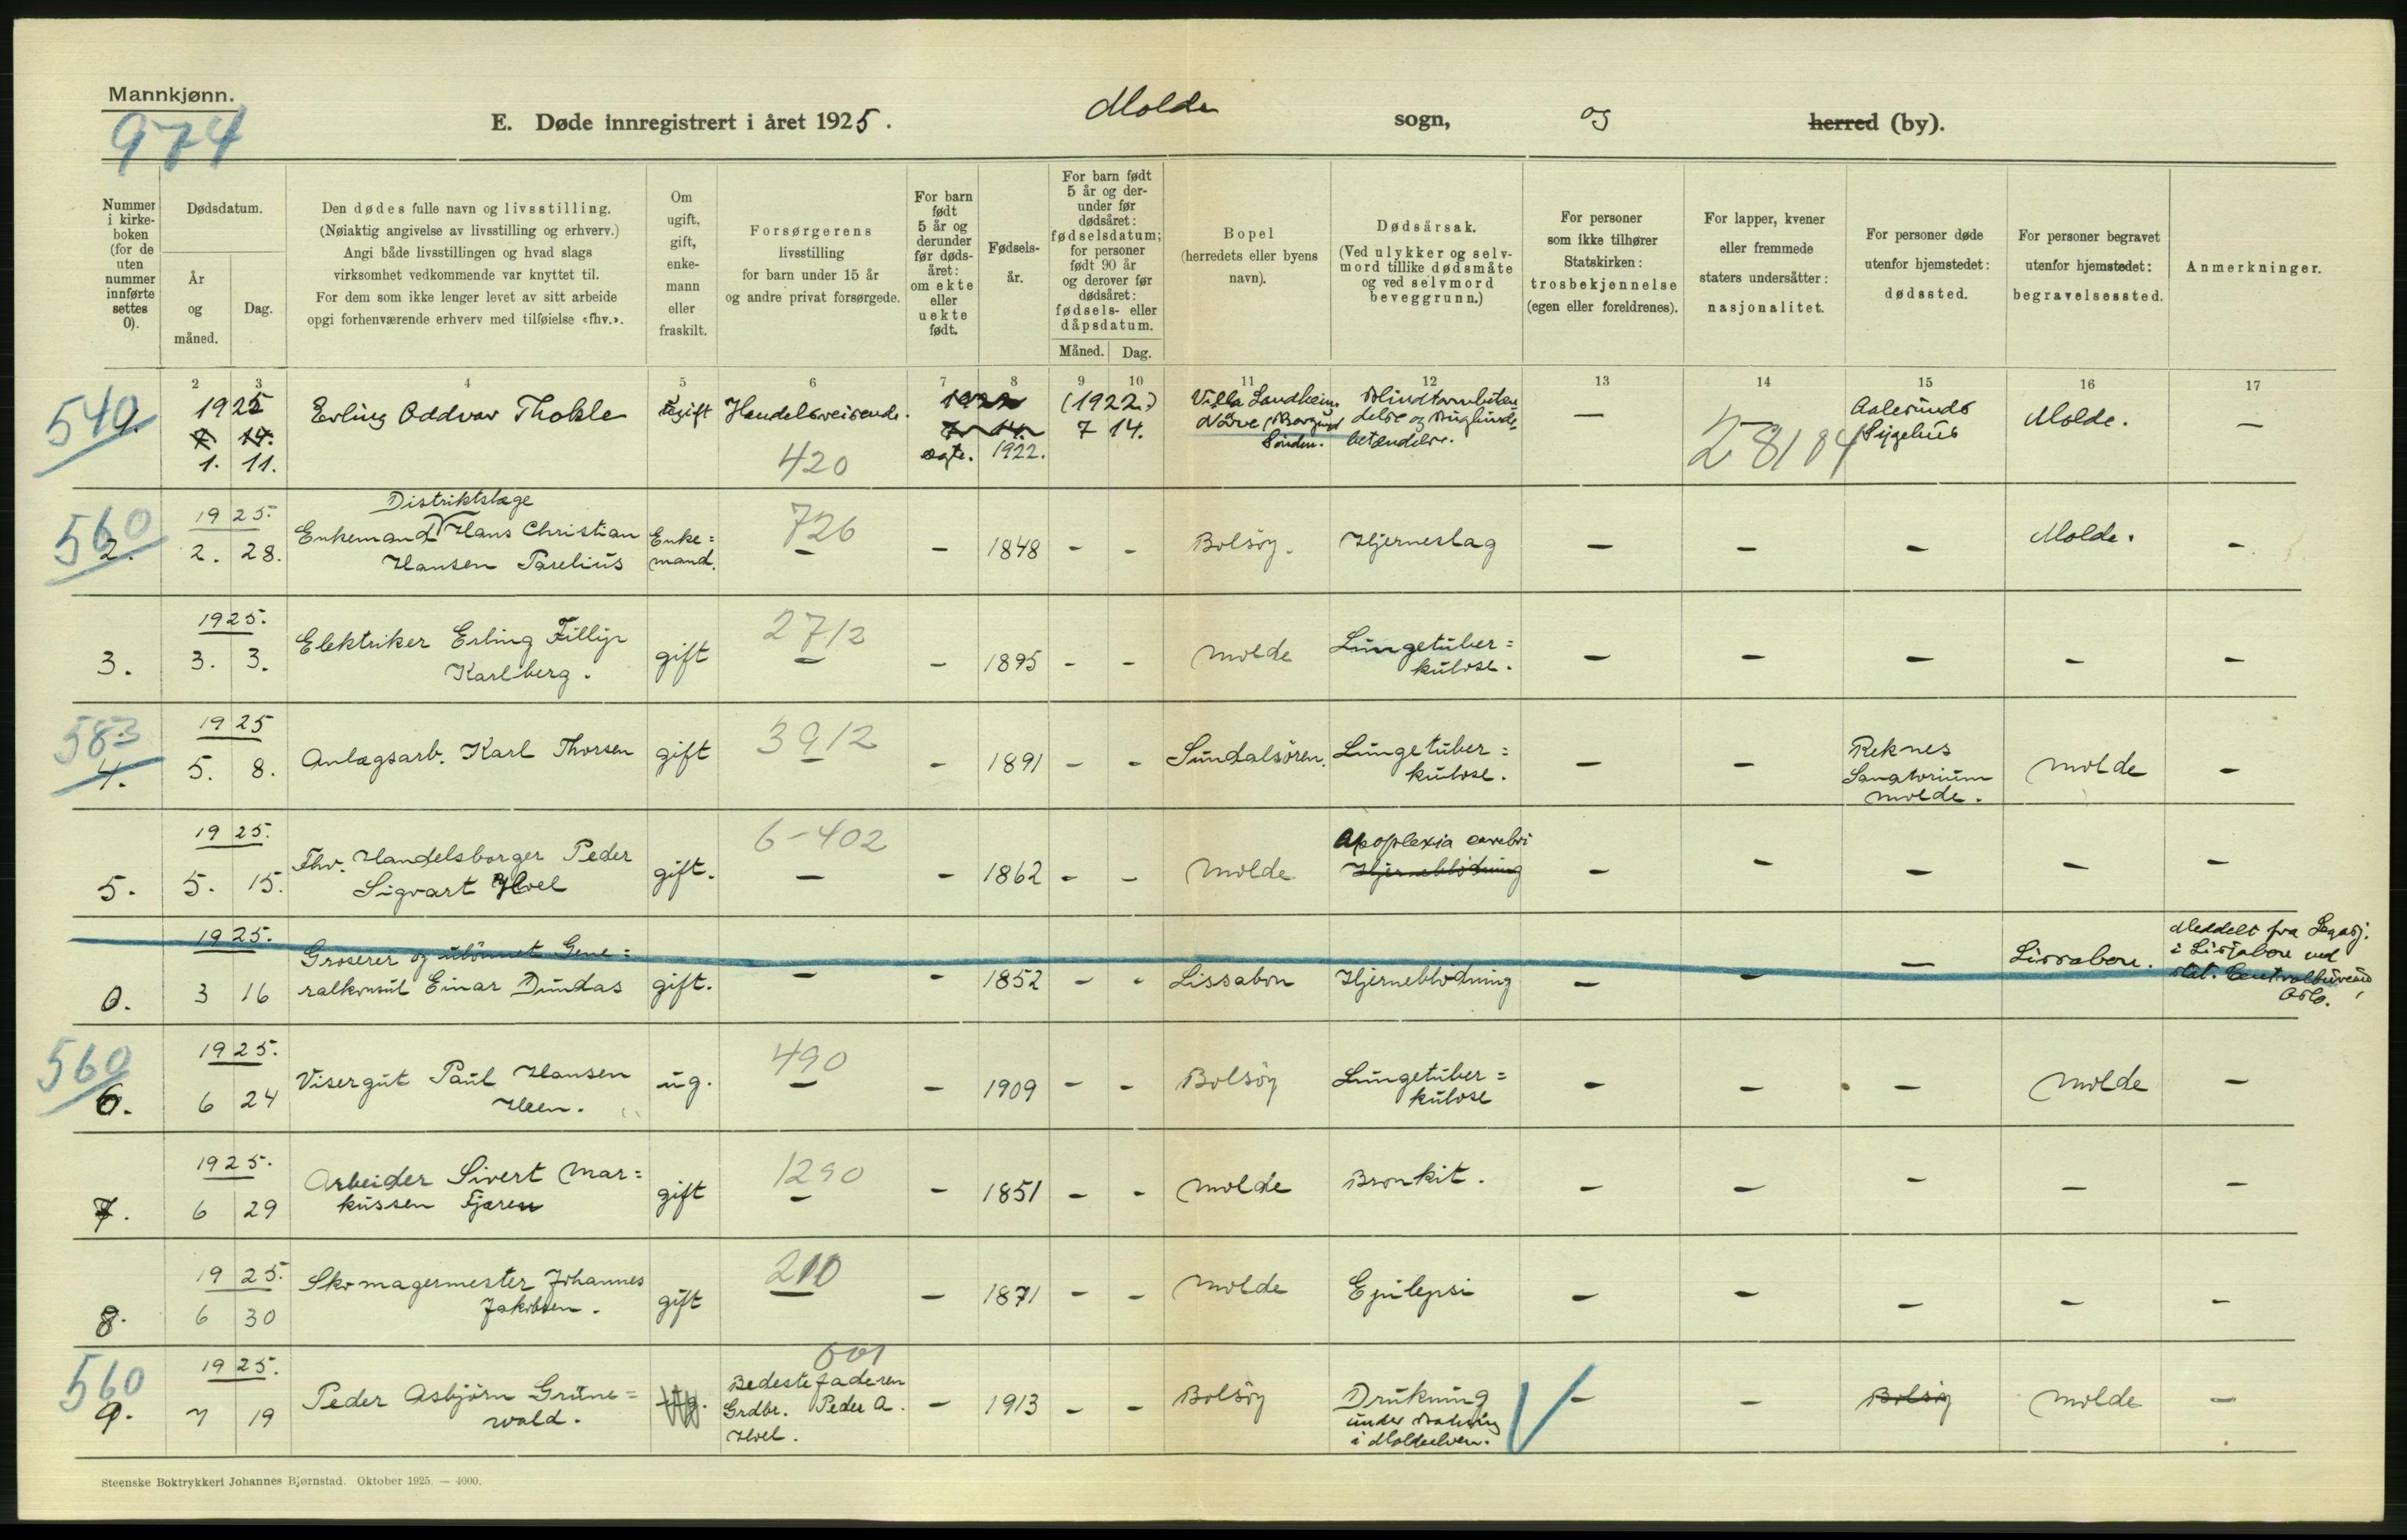 Mannkjønn.
974
E. Døde innregistrert i året 1925. Molde sogn, og herred (by).
Nummer i kirkeboken (for de uten nummer innførte settes 0).
Dødsdatum.
År og måned.
Dag.
Den dødes fulle navn og livsstilling.
(Nøiaktig angivelse av livsstilling og erhverv.)
Angi både livsstillingen og hvad slags
virksomhet vedkommende var knyttet til.
For dem som ikke lenger levet av sitt arbeide
opgi forhenværende erhverv med tilføielse «fhv.».
Om ugift, gift, enkemann eller fraskilt.
Forsørgerens
livsstilling
for barn under 15 år
og andre privat forsørgede.
For barn født 5 år og derunder før dødsåret: om ekte eller uekte født.
Fødselsår.
For barn født 5 år og derunder før dødsåret: fødselsdatum; for personer født 90 år og derover før dødsåret: fødsels- eller dåpsdatum.
Måned. Dag.
Bopel
(herredets eller byens
navn).
Dødsårsak.
(Ved ulykker og selvmord tillike dødsmåte og ved selvmord beveggrunn.)
For personer
som ikke tilhører
Statskirken:
trosbekjennelse
(egen eller foreldrenes).
For lapper, kvener
eller fremmede
staters undersåtter:
nasjonalitet.
For personer døde
utenfor hjemstedet:
dødssted.
For personer begravet
utenfor hjemstedet:
begravelsessted.
Anmerkninger.
2 3 4 5 6 7 8 9 10 11 12 13 14 15 16 17
540 1925 Erling Oddvar Thokle ugift Handelsreisende. 1922 (1922.) Villa Landheim Blindtarmbeten
7 14. 7 14. 7 14. Nörve, Borgund delse og Bughinde
1. 11. 420 egte. 1922. Sönden. betændelse. — 28184 Aalesunds Sygehus Molde. —
560 1925. Distriktslæge 726
2. 2. 28. Enkemand Hans Christian Enke= — – 1848 – – Bolsöy. Hjerneslag – – – Molde. –
Hansen Parelius mand.
1925. Elektriker Erling Fillip 2712 Lungetuber=
3. 3. 3. Karlberg. gift – – 1895 – – Molde kulose. – – – – –
583 1925 3912
4. 5. 8. Anlægsarb. Karl Thorsen gift – – 1891 – – Sundalsören. Lungetuber= – – Reknes Molde –
kulose. Sanatorium
Molde.
1925. 6-402 Apoplexia cerebri
5. 5. 15. Fhv. Handelsborger Peder gift. – – 1862 – – Molde Hjerneblödning – – – – –
Sigvart Hoel
1925. Groserer og ulönnet Gene= Meddelt fra Legasj.
0. 3 16 ralkonsul Einar Dundas gift. – – 1852 – – Lissabon Hjerneblödning – – – Lissabon. i Lissabon ved
stat. Centralbureau
Oslo.
560 1925. 490
6. 6 24 Visergut Paul Hansen ug. – – 1909 – – Bolsöy Lungetuber= – – – Molde –
Heen. kulose
1925. 1290
7. 6 29 Arbeider Sivert Mar= gift – – 1851 – – Molde Bronkit. – – – – –
kussen Fjæren
1925. 210
8. 6 30 Skomagermester Johannes gift – – 1871 – – Molde Epilepsi – – – – –
Jakobsen.
560 1925. 601
9. 7 19 Peder Asbjörn Grüne= ug. Bedestefaderen – 1913 – – Bolsöy Drukning – – Bolsöy Molde –
wald. Grdbr. Peder A. under Badning
Hoel. i Moldeelven.
Steenske Boktrykkeri Johannes Bjørnstad. Oktober 1925. — 4000.